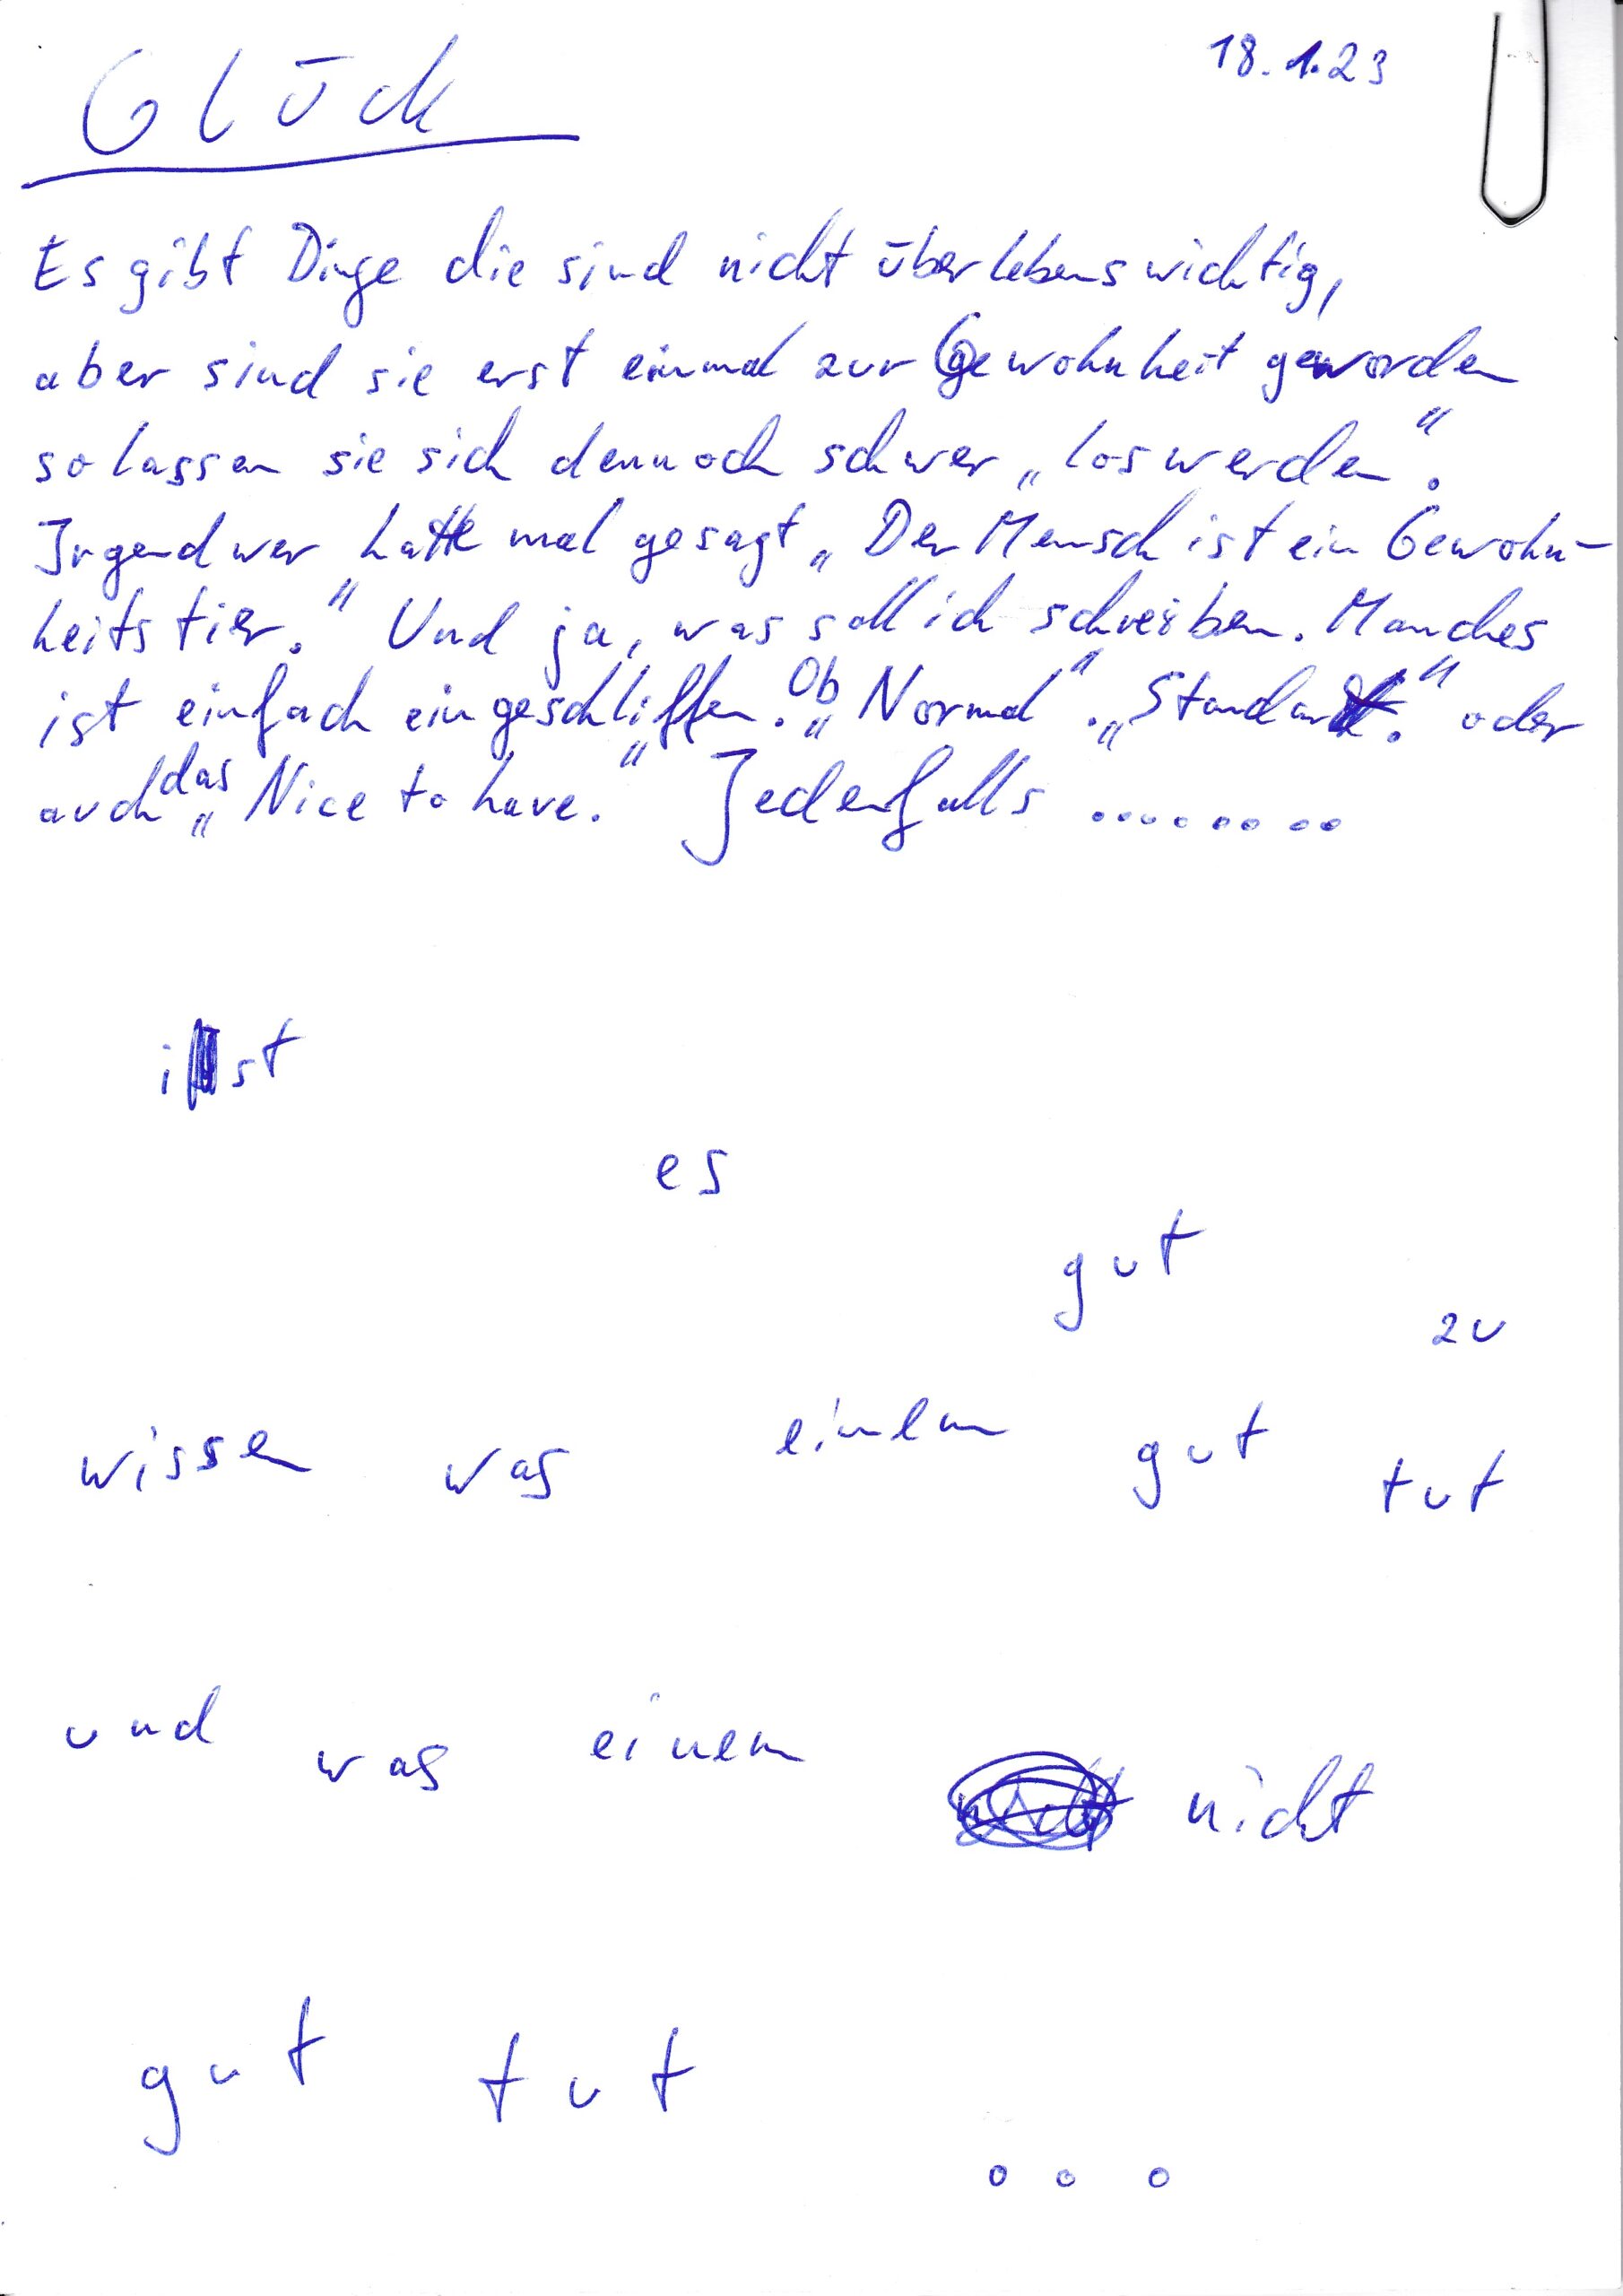 18.1.23
Glück
Es gibt Dinge die sind nicht überlebenswichtig,
aber sind sie erst einmal zur Gewohnheit geworden
so lassen sie sich dennoch schwer „loswerden".
Irgendwer hatte mal gesagt „Der Mensch ist ein Gewohn-
heitstier." Und ja, was soll ich schreiben. Manches
ist einfach eingeschliffen. Ob „Normal". „Standard." oder
auch das „Nice to have." Jedenfalls .........
ist
es
gut
zu
wissen was einem gut tut
und was einem nicht
gut tut
...